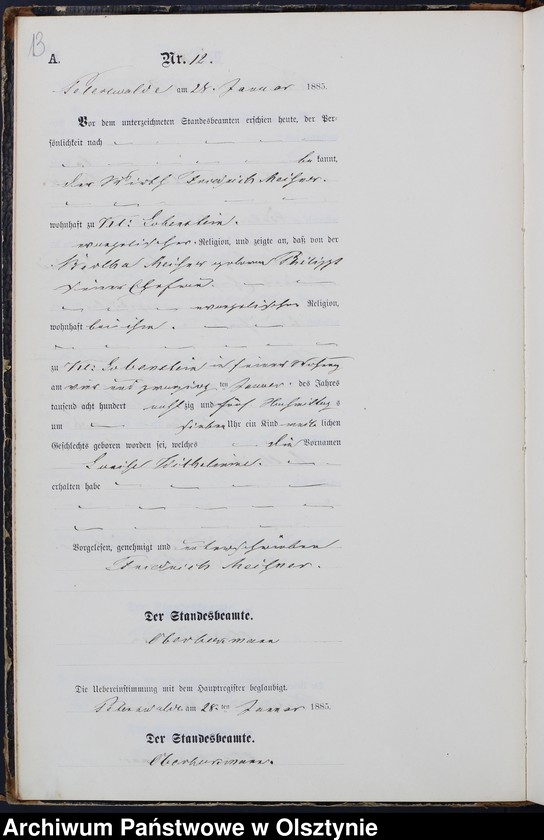 13
A. Nr. 12.
am 28. Januar 1885.
Vor dem unterzeichneten Standesbeamten erschien heute, der Per-
sönlichkeit nach
be kannt,
der Wirth Friedrich Meißner.
wohnhaft zu Kl:
evangelischer Religion, und zeigte an, daß von der
Bertha Meißner geborene
seiner Ehefrau
evangelischer Religion,
wohnhaft bei ihm.
zu Kl: in seiner Wohnung
am vier und zwanzig ten Januar des Jahres
tausend acht hundert acht zig und fünf Nachmittags
um sieben Uhr ein Kind weib lichen
Geschlechts geboren worden sei, welches die Vornamen
Louise Wilhelmine.
erhalten habe
Vorgelesen, genehmigt und unterschrieben
Friedrich Meißner.
Der Standesbeamte.
Die Uebereinstimmung mit dem Hauptregister beglaubigt.
am 28. ten Januar 1885.
Der Standesbeamte.
Archiwum Państwowe w Olsztynie